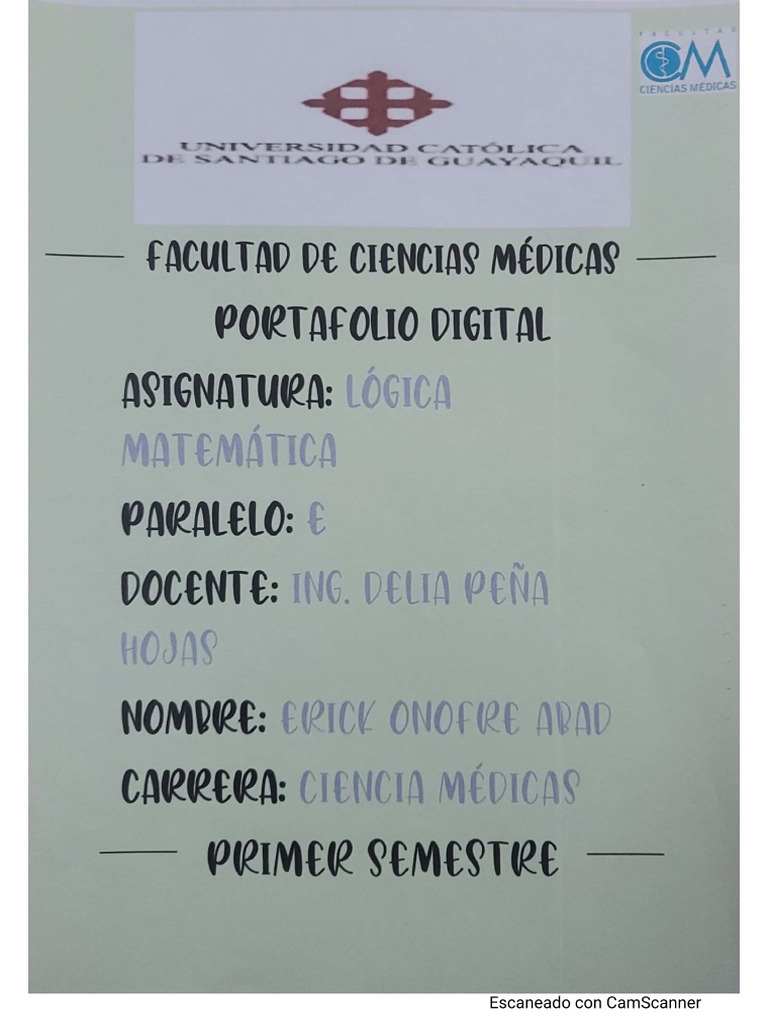 FACULTAD
CM
CIENCIAS MÉDICAS
UNIVERSIDAD CATÓLICA
DE SANTIAGO DE GUAYAQUIL
FACULTAD DE CIENCIAS MÉDICAS
PORTAFOLIO DIGITAL
ASIGNATURA: LÓGICA
MATEMÁTICA
PARALELO: E
DOCENTE: ING. DELIA PEÑA
HOJAS
NOMBRE: ERICK ONOFRE ABAD
CARRERA: CIENCIA MÉDICAS
PRIMER SEMESTRE
Escaneado con CamScanner